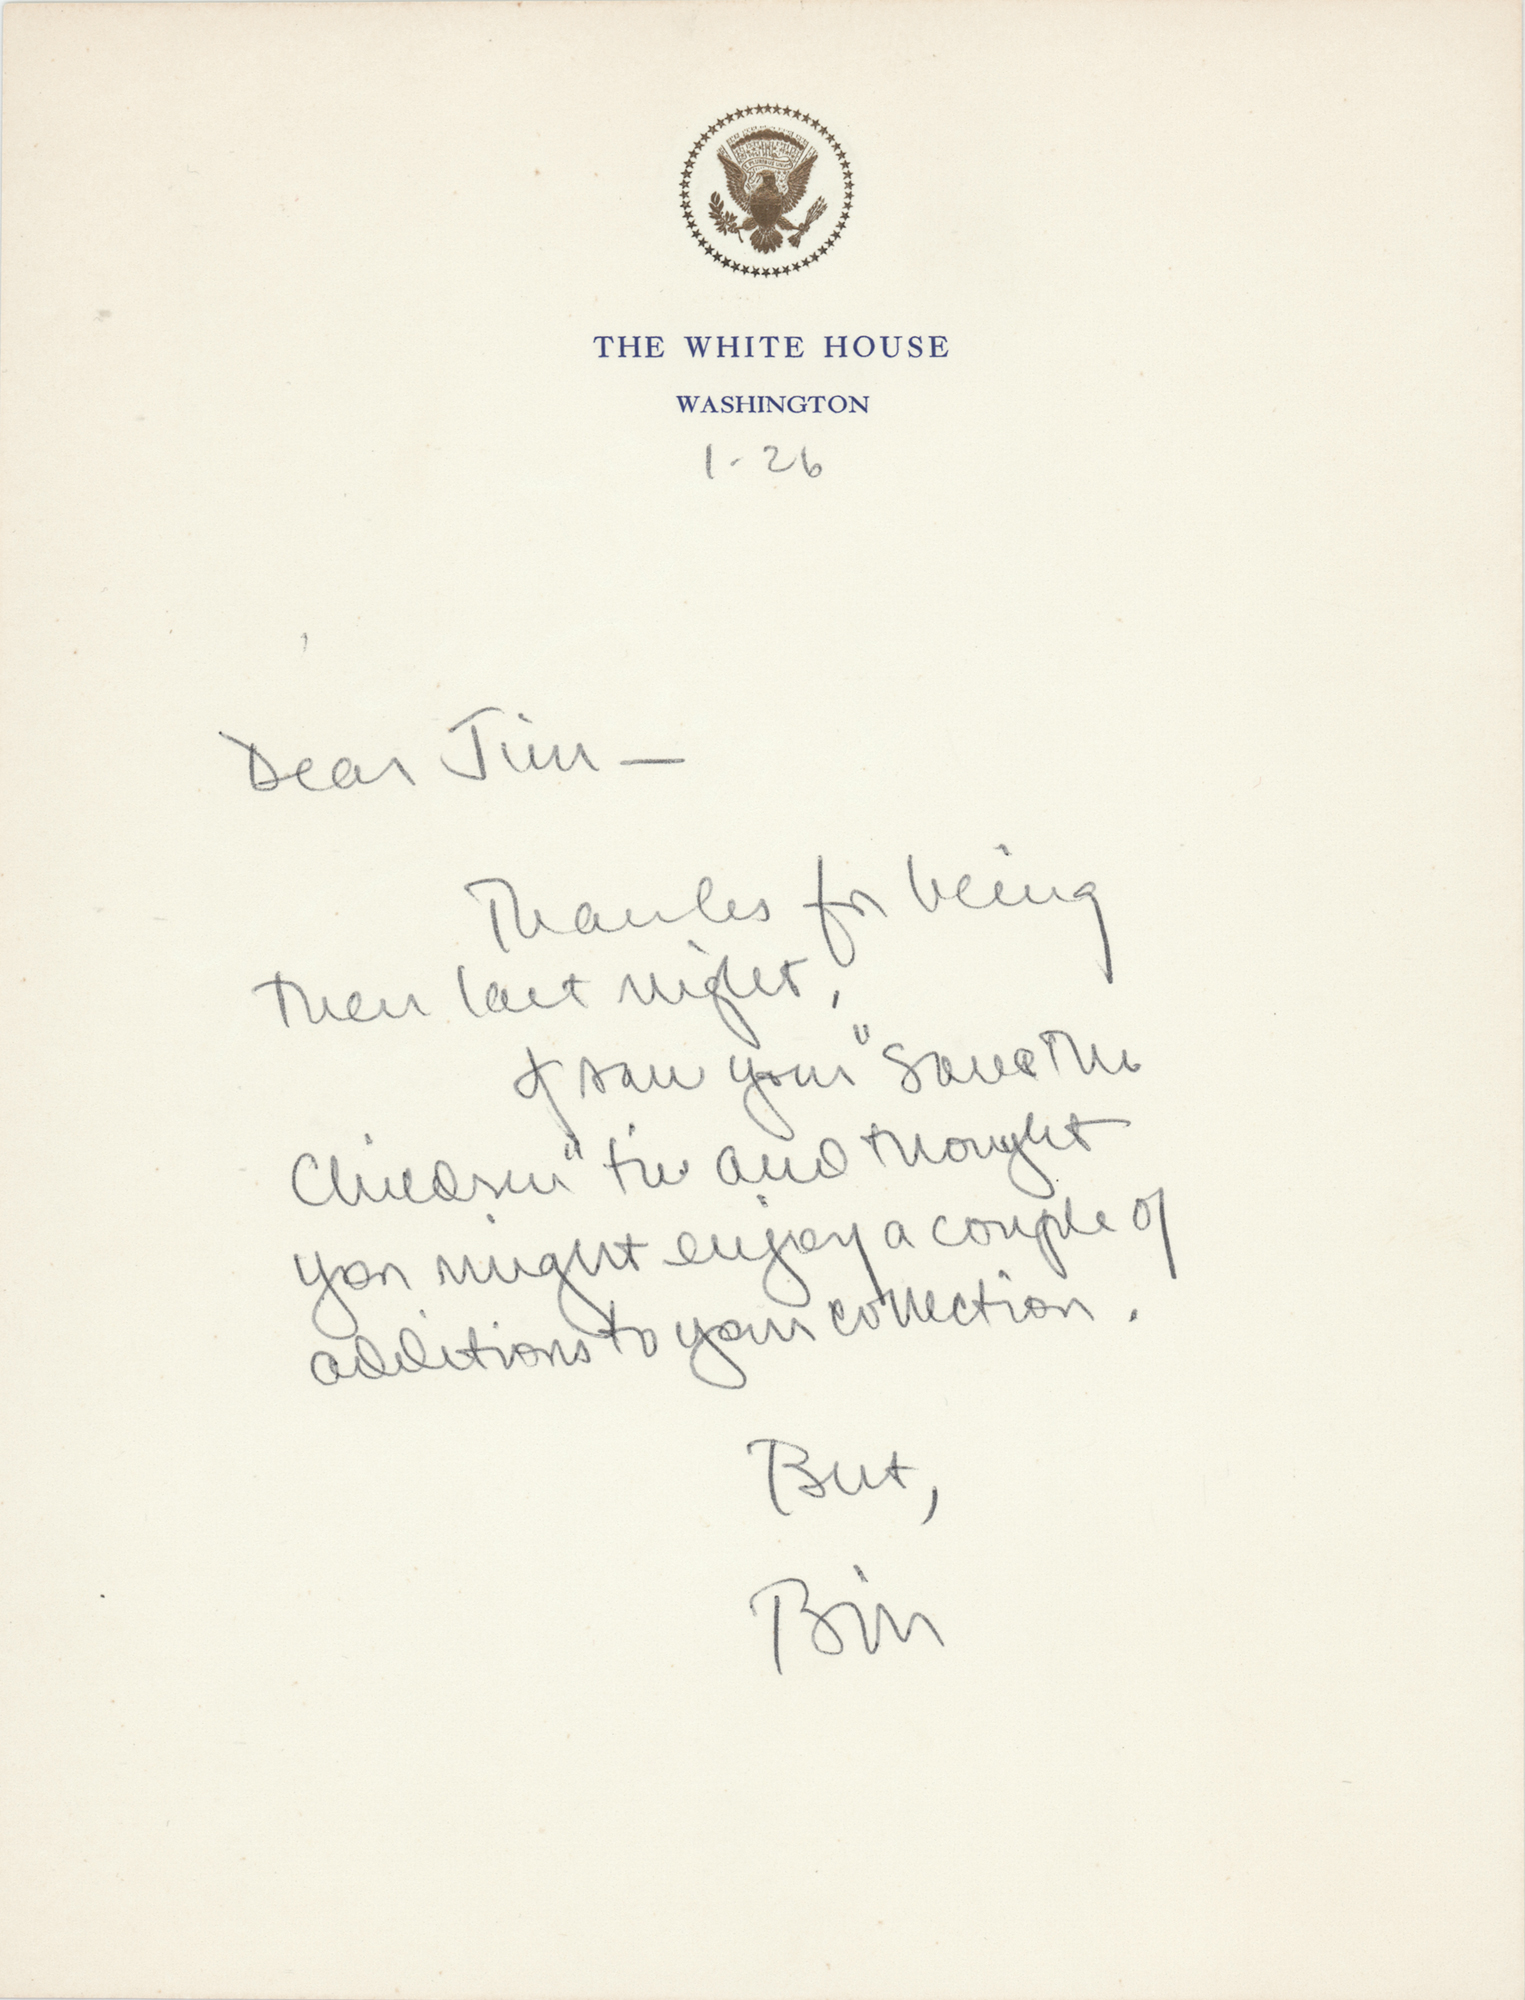 THE WHITE HOUSE
WASHINGTON
1-26
Dear Jim —
Thanks for being
there last night.
I saw your "Save the
Children" tie and thought
you might enjoy a couple of
additions to your collection.
Best,
Bill